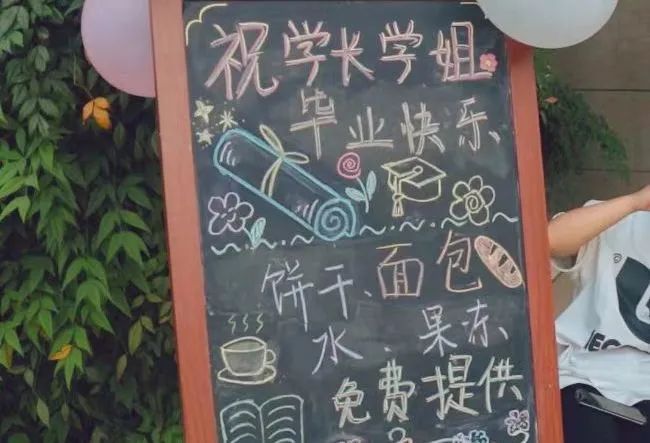 祝学长学姐
毕业快乐
饼干、面包
水、果冻
免费提供